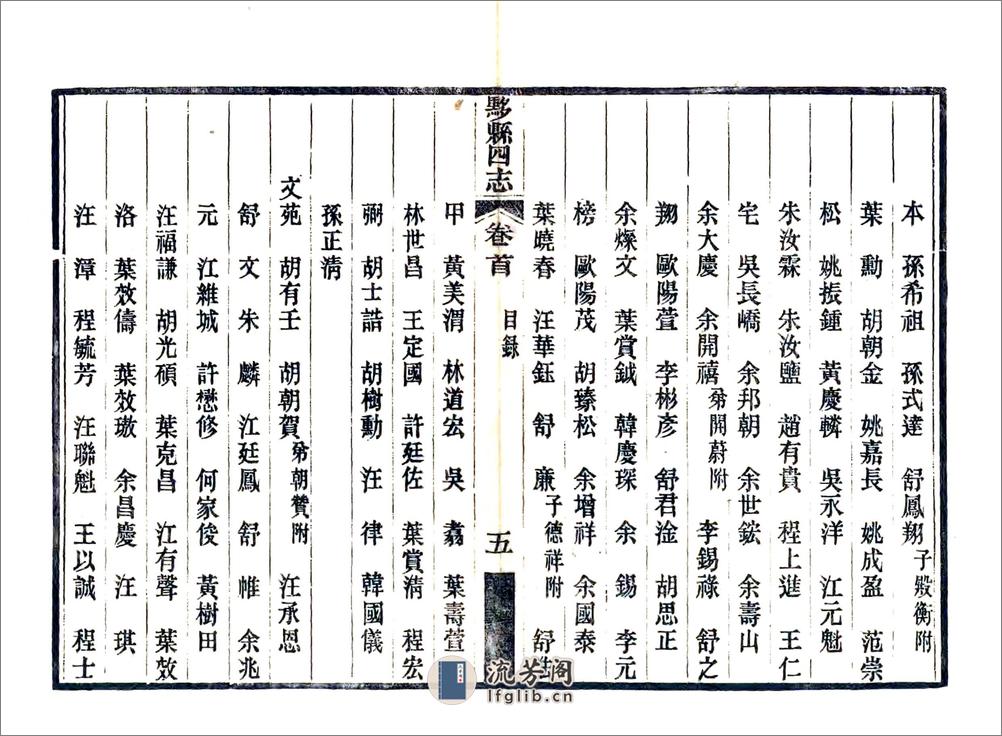 本　孫希祖　孫式達　舒鳳翔子殿衡附
葉　勳　胡朝金　姚嘉長　姚成盈　范崇
松　姚振鍾　黃慶轔　吳永洋　江元魁
朱汝霖　朱汝鹽　趙有貴　程上進　王仁
宅　吳長嶠　余邦朝　余世鋐　余壽山
余大慶　余開禧弟開蔚附　李錫祿　舒之
翔　歐陽萱　李彬彥　舒君淦　胡思正
余燦文　葉賞鉞　韓慶琛　余　錫　李元
榜　歐陽茂　胡臻松　余增祥　余國泰
葉曉春　汪華鈺　舒　廉子德祥附　舒
黟縣四志　卷首　目錄　五
甲　黃美渭　林道宏　吳　翥　葉壽萱
林世昌　王定國　許廷佐　葉賞淸　程宏
弼　胡士誥　胡樹勳　汪　律　韓國儀
孫正淸
文苑　胡有壬　胡朝賀弟朝贊附　汪承恩
舒　文　朱　麟　江廷鳳　舒　帷　余兆
元　江維城　許懋修　何家俊　黃樹田
汪福謙　胡光碩　葉克昌　江有聲　葉效
洛　葉效儔　葉效璈　余昌慶　汪　琪
汪　漳　程毓芳　汪聯魁　王以誠　程士
流芳閣
lfglib.cn